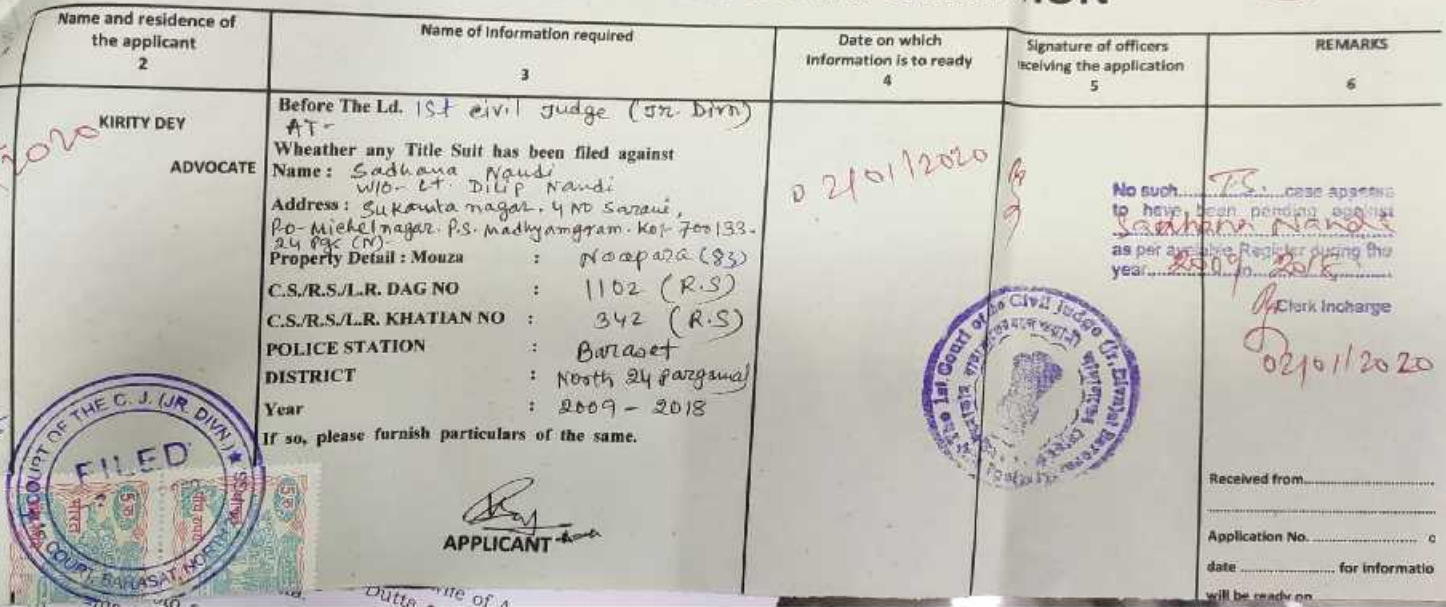 Name and residence of
the applicant
2
Name of Information required
3
Date on which
Information is to ready
4
Signature of officers
receiving the application
5
REMARKS
6
KIRITY DEY
ADVOCATE
Before The Ld. 1st civil Judge (Jr. Divn)
AT-
Wheather any Title Suit has been filed against
Name : Sadhana Nandi
W/O- Lt. Dilip Nandi
Address : Sukanta nagar. 4 No Sarani,
P.o- Michelnagar. P.S. Madhyamgram. Kol- 700133.
24 Pgs (N)-
Property Detail : Mouza : Noapara (83)
C.S./R.S./L.R. DAG NO : 1102 (R.S)
C.S./R.S./L.R. KHATIAN NO : 342 (R.S)
POLICE STATION : Baraset
DISTRICT : North 24 Parganas
Year : 2009 - 2018
If so, please furnish particulars of the same.
APPLICANT
02/01/2020
No such T.S. case appears
to have been pending against
Sadhana Nandi
as per available Register during the
year 2009 to 2018
Clerk Incharge
02/01/2020
Received from
Application No.
date for informatio
will be ready on
2020
COURT OF THE C. J. (JR. DIVN.)
FILED
COURT, BARASAT, NORTH
The 1st Court of the Civil Judge (Jr. Divn) at
Dutta